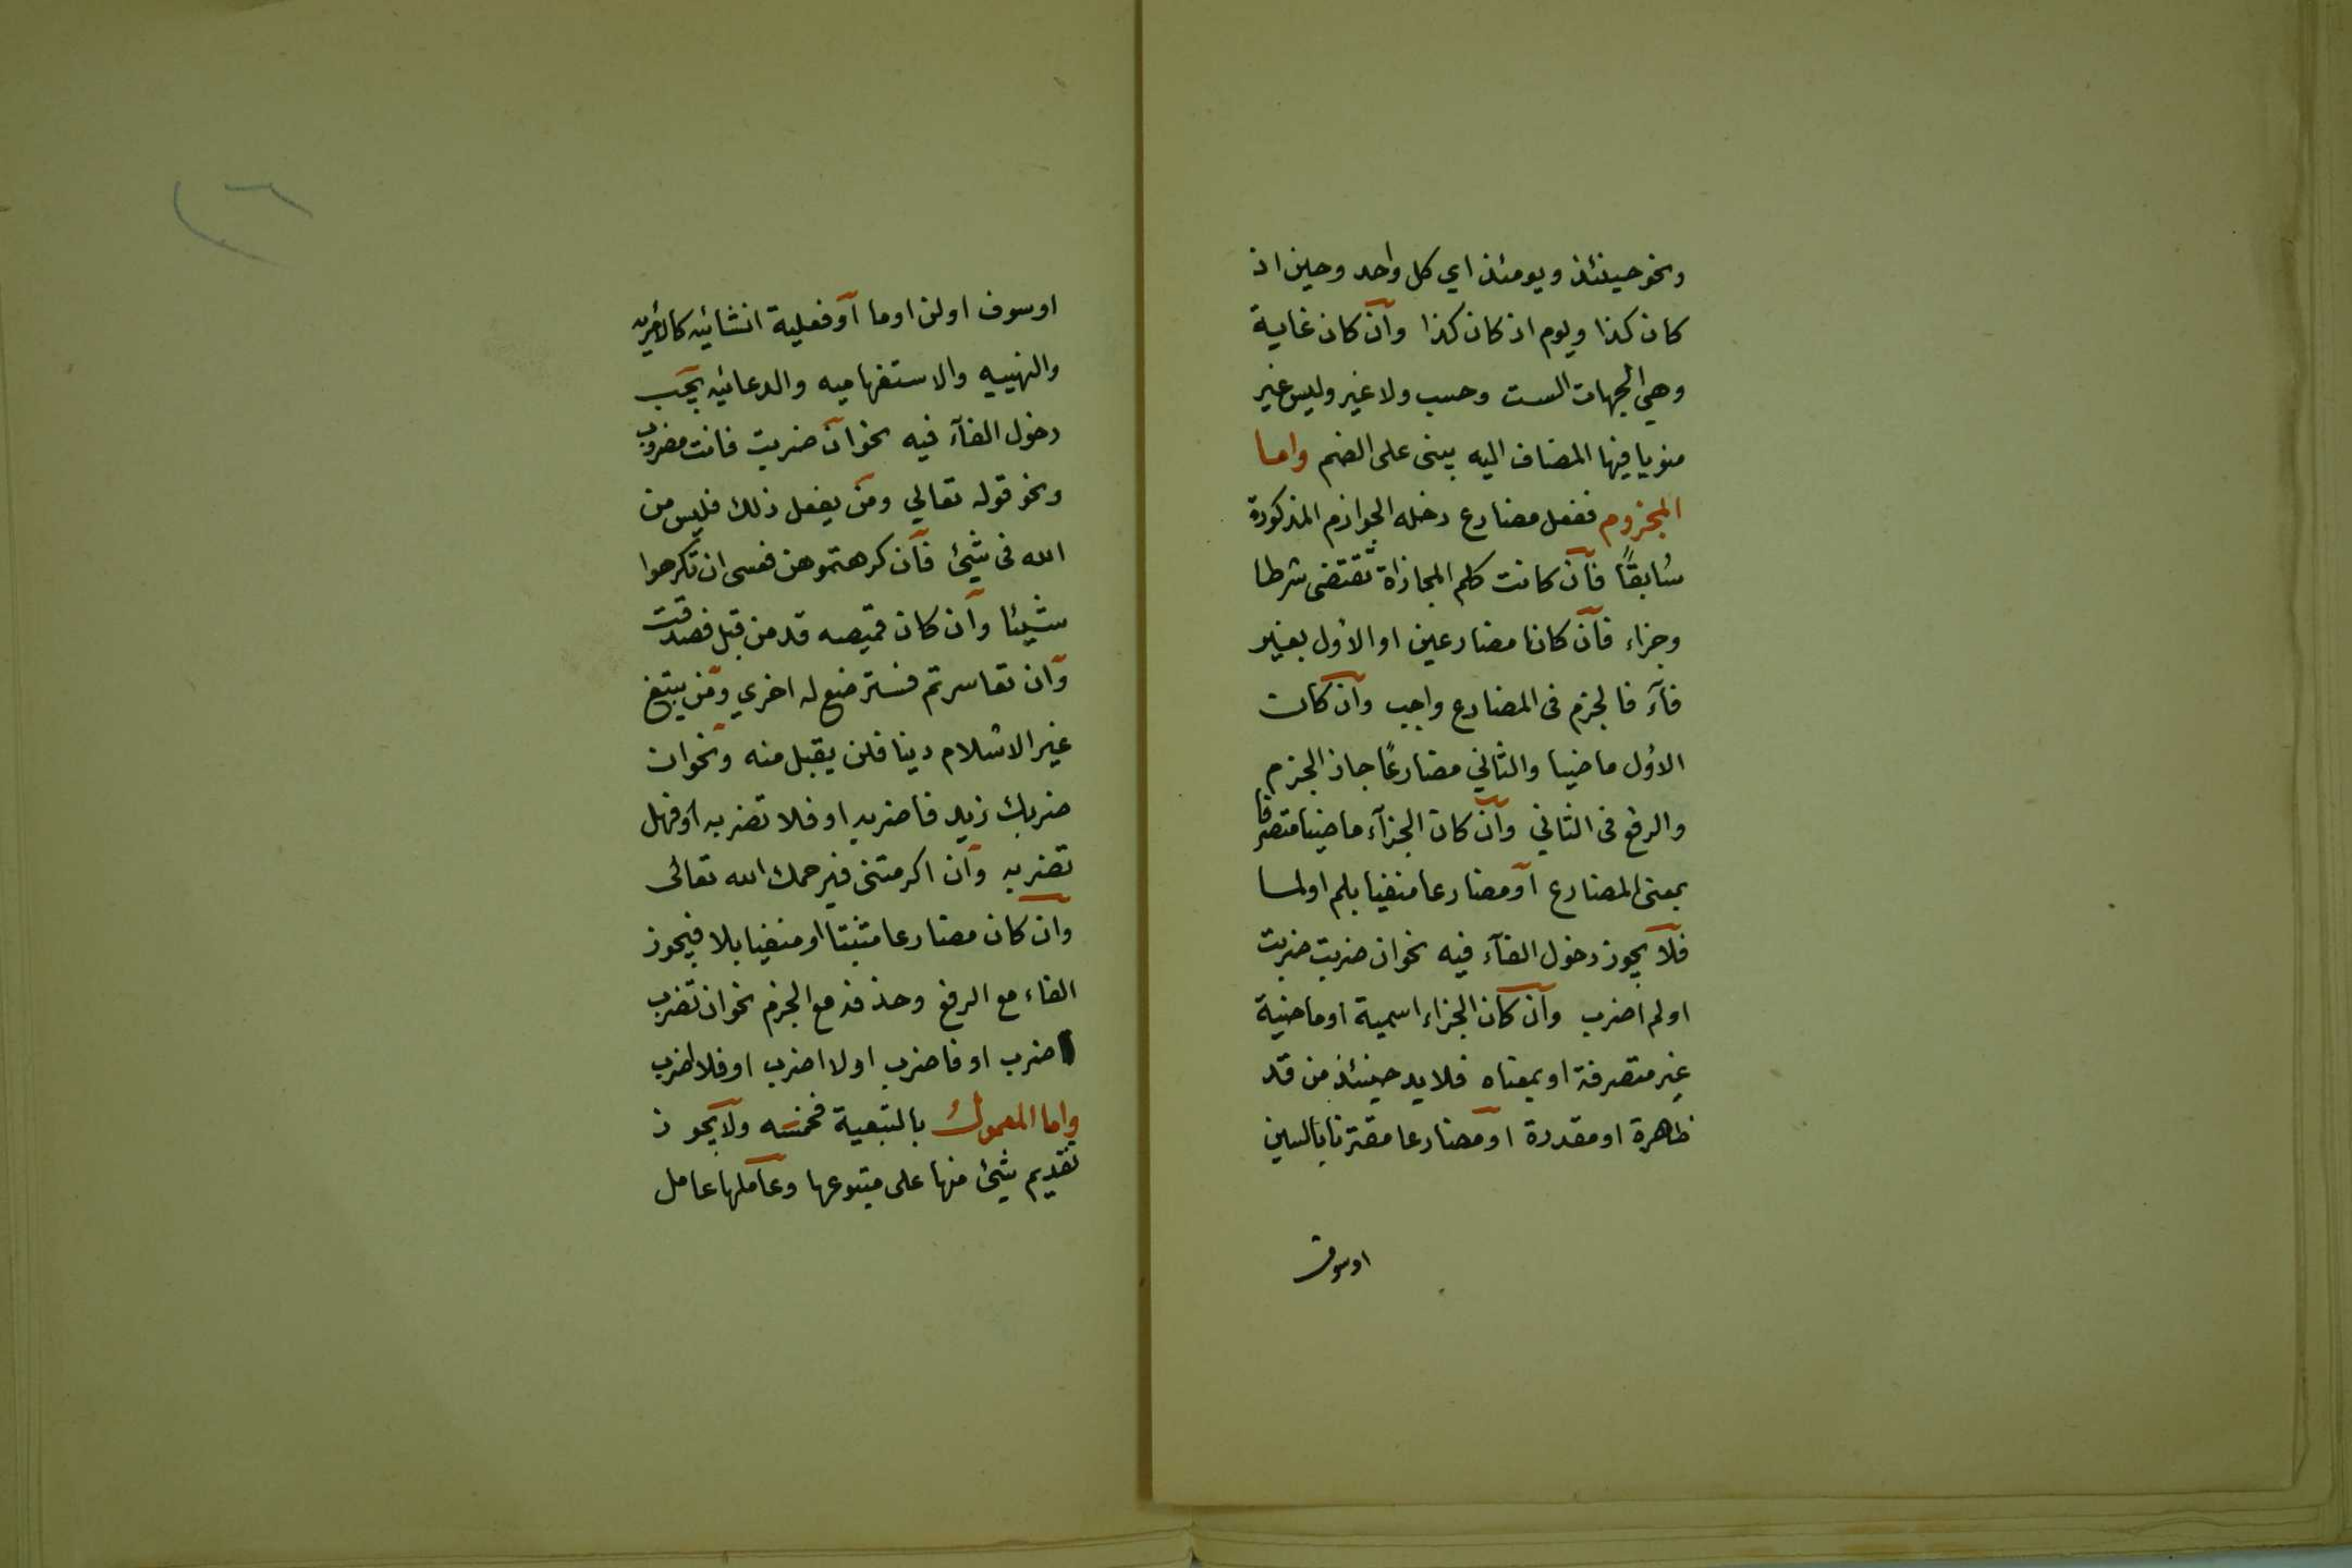 ونحو حينئذ ويومئذ اي كل واحد وحين اذ
كان كذا ويوم اذ كان كذا وان كان غاية
وهي الجهات الست وحسب ولا غير وليس غير
منويا فيها المضاف اليه يبنى على الضم واما
المجزوم ففعل مضارع دخله الجوازم المذكورة
سابقًا فان كانت كلم المجازاة تقتضى شرطا
وجزاء فان كانا مضارعين او الاول بغير
فآء فالجزم فى المضارع واجب وان كان
الاول ماضيا والثاني مضارعًا جاز الجزم
والرفع فى الثاني وان كان الجزآء ماضيا متصرفا
بمعنى المضارع او مضارعا منفيا بلم او لما
فلا يجوز دخول الفآء فيه نحو ان ضربت ضربت
او لم اضرب وان كان الجزاء اسمية او ماضية
غير متصرفة او بمعناه فلا بد حينئذ من قد
ظاهرة او مقدرة او مضارعا مقترنا بالسين
او سوف
٢٦
او سوف او لن او ما او فعلية انشائيه كالامريه
والنهييه والاستفهاميه والدعائيه يجب
دخول الفآء فيه نحو ان ضربت فانت مضروب
ونحو قوله تعالي ومن يفعل ذلك فليس من
الله فى شيئ فان كرهتموهن فعسى ان تكرهوا
شيئا وان كان قميصه قد من قبل فصدقت
وان تعاسرتم فسترضع له اخري ومن يبتغ
غير الاسلام دينا فلن يقبل منه ونحو ان
ضربك زيد فاضربه او فلا تضربه او فهل
تضربه وان اكرمتنى فيرحمك الله تعالى
وان كان مضارعا مثبتا او منفيا بلا فيجوز
الفاء مع الرفع وحذفه مع الجزم نحو ان تضرب
اضرب او فاضرب او لا اضرب او فلا اضرب
واما المعمول بالتبعية فخمسه ولا يجوز
تقديم شيئ منها على متبوعها وعاملها عامل